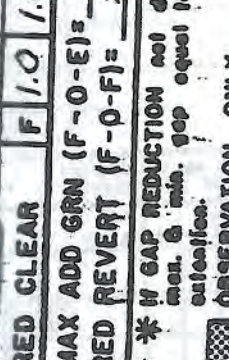 RED CLEAR F 1.0 1.
MAX ADD GRN (F-O-E)=
RED REVERT (F-O-F)=
* If GAP REDUCTION not
max. & min. gap equal
extention.
OBSERVATION ONLY